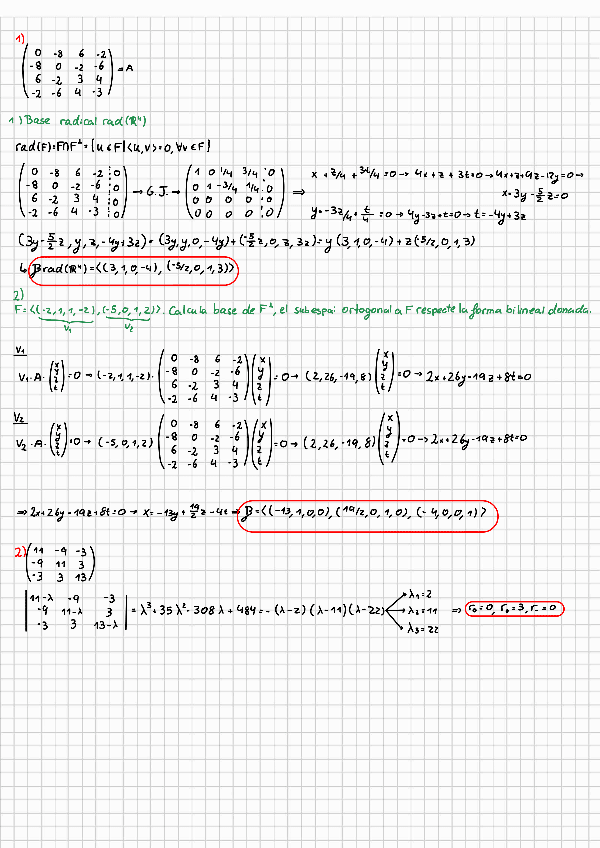 1)
( 0 -8 6 -2 )
( -8 0 -2 -6 ) = A
( 6 -2 3 4 )
( -2 -6 4 -3 )
1) Base radical rad(ℝ⁴)
rad(F)=F∩F⊥={u∈F|<u,v>=0, ∀v∈F}
( 0 -8 6 -2 ⋮ 0 ) ( 1 0 1/4 3/4 ⋮ 0 ) x + z/4 + 3t/4 = 0 → 4x + z + 3t = 0 → 4x+z+9z-12y=0 →
( -8 0 -2 -6 ⋮ 0 ) → G.J. → ( 0 1 -3/4 1/4 ⋮ 0 ) ⇒ x = 3y - 5/2 z = 0
( 6 -2 3 4 ⋮ 0 ) ( 0 0 0 0 ⋮ 0 )
( -2 -6 4 -3 ⋮ 0 ) ( 0 0 0 0 ⋮ 0 ) y = -3z/4 + t/4 = 0 → 4y-3z+t=0 → t=-4y+3z
(3y-5/2 z, y, z, -4y+3z) = (3y, y, 0, -4y) + (-5/2 z, 0, z, 3z) = y (3, 1, 0, -4) + z (5/2, 0, 1, 3)
↳ B rad(ℝ⁴)=<(3,1,0,-4), (-5/2,0,1,3)>
2)
F=<(-2,1,1,-2),(-5,0,1,2)>. Calcula base de F⊥, el subespai ortogonal a F respecte la forma bilineal donada.
V₁ V₂
V₁
V₁·A·(x y z t) = 0 → (-2,1,1,-2)· ( 0 -8 6 -2 ) ( -8 0 -2 -6 ) ( 6 -2 3 4 ) ( -2 -6 4 -3 ) (x y z t) = 0 → (2,26,-19,8) (x y z t) = 0 → 2x+26y-19z+8t=0
V₂
V₂·A·(x y z t) = 0 → (-5,0,1,2) ( 0 -8 6 -2 ) ( -8 0 -2 -6 ) ( 6 -2 3 4 ) ( -2 -6 4 -3 ) (x y z t) = 0 → (2,26,-19,8) (x y z t) = 0 → 2x+26y-19z+8t=0
⇒ 2x+26y-19z+8t=0 → x=-13y+19/2 z-4t → B=<(-13,1,0,0), (19/2,0,1,0), (-4,0,0,1)>
2) ( 11 -9 -3 )
( -9 11 3 )
( -3 3 13 )
| 11-λ -9 -3 | λ₁=2
| -9 11-λ 3 | = λ³+35λ²-308λ+484=-(λ-2)(λ-11)(λ-22) λ₂=11 ⇒ r₀=0, r₊=3, r₋=0
| -3 3 13-λ | λ₃=22